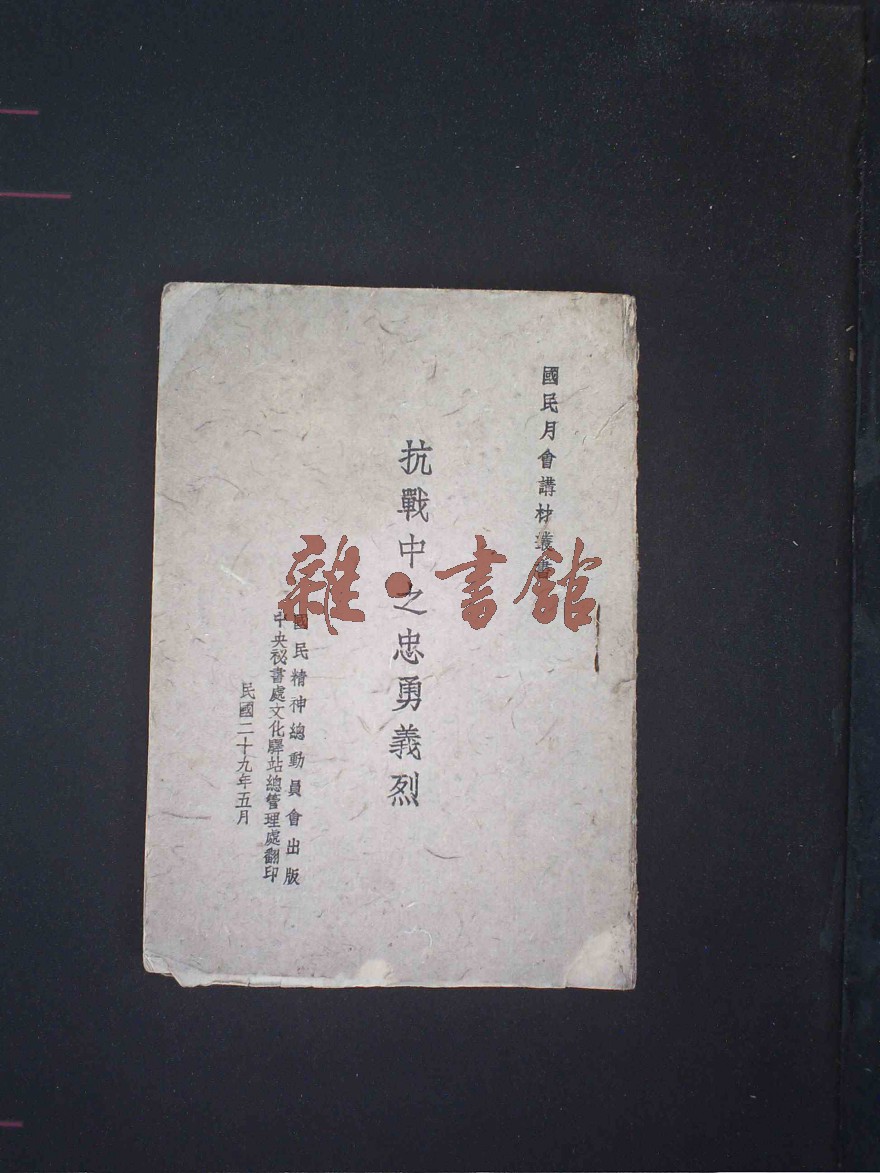 國民月會講材叢書
抗戰中之忠勇義烈
國民精神總動員會出版
中央祕書處文化驛站總管理處翻印
民國二十九年五月
雜·書館